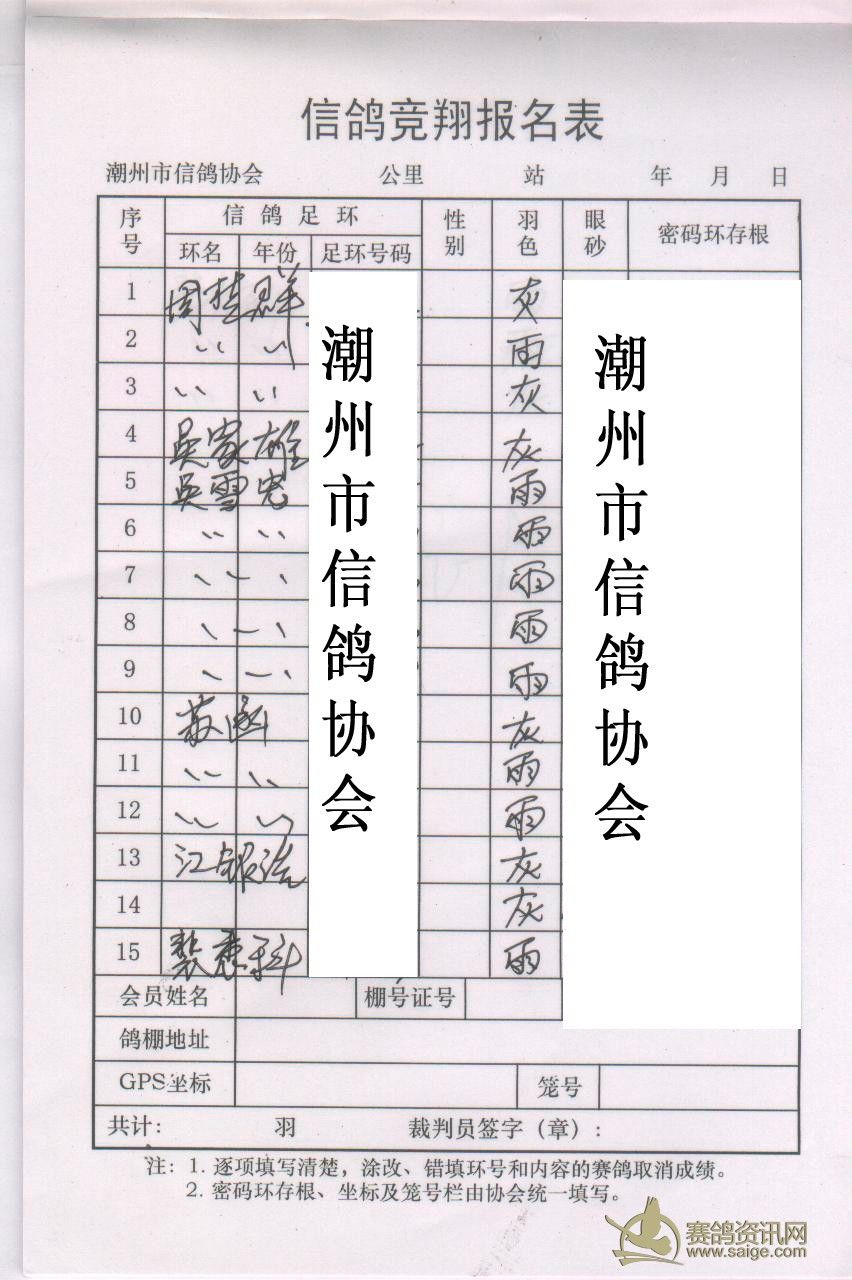 信鸽竞翔报名表
潮州市信鸽协会 公里 站 年 月 日
序号 信鸽足环 性别 羽色 眼砂 密码环存根
环名 年份 足环号码
1 周桂群 灰
2 〃 〃 雨
3 〃 〃 灰
4 吴家雄 灰
5 吴雪忠 雨
6 〃 〃 雨
7 雨
8 雨
9 雨
10 苏 灰
11 〃 〃 雨
12 〃 〃 雨
13 江银浩 灰
14 灰
15 科 雨
潮州市信鸽协会
潮州市信鸽协会
会员姓名 棚号证号
鸽棚地址
GPS坐标 笼号
共计: 羽 裁判员签字(章):
注: 1. 逐项填写清楚,涂改、错填环号和内容的赛鸽取消成绩。
2. 密码环存根、坐标及笼号栏由协会统一填写。
赛鸽资讯网
www.saige.com